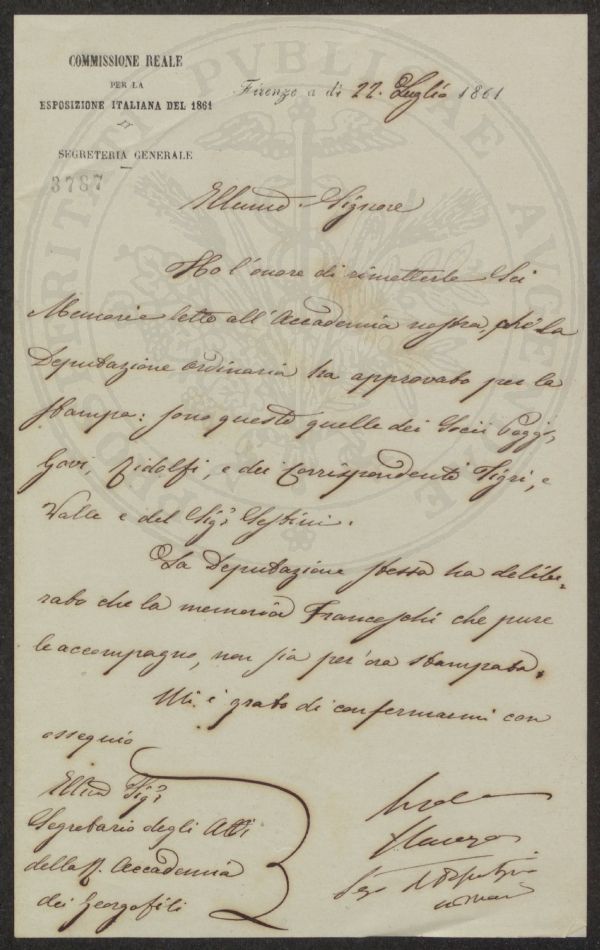 COMMISSIONE REALE
PER LA
ESPOSIZIONE ITALIANA DEL 1861
SEGRETERIA GENERALE
3787
Firenze a dì 22. Luglio 1861
Illumo Signore
Ho l'onore di rimetterle Sei
Memorie lette all'Accademia nostra, che la
Deputazione ordinaria ha approvato per la
stampa: sono queste quelle dei Socii Poggi,
Govi, Ridolfi, e dei Corrispondenti Tigri, e
Valle e del Sigr Sestini.
La Deputazione stessa ha delibe=
rato che la memoria Franceschi che pure
le accompagno, non sia per ora stampata.
Mi è grato di confermarmi con
ossequio
Illmo Sigr
Segretario degli Atti
della R. Accademia
dei Georgofili